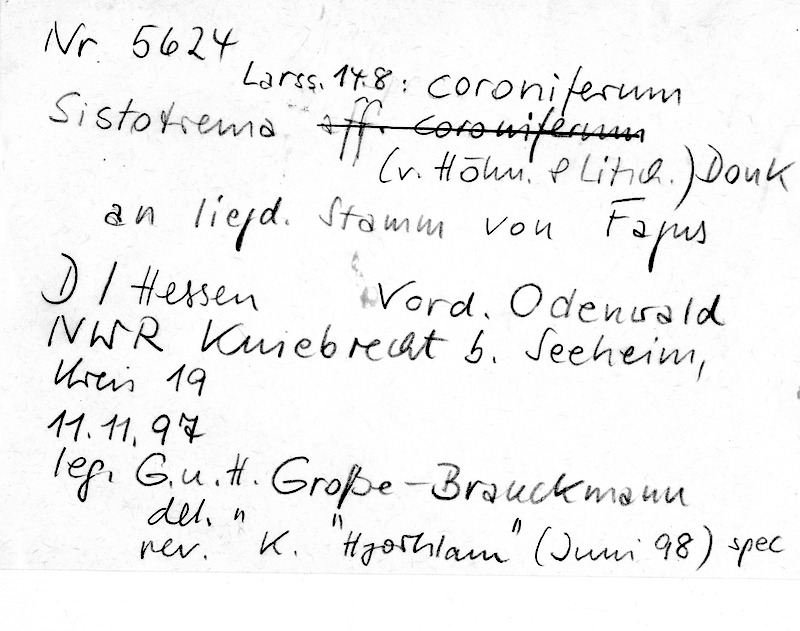 Nr 5624
Larss. 148 : coroniferum
Sistotrema aff. coroniferum
(v. Höhn. & Litsch.) Donk
an liegd. Stamm von Fagus
D / Hessen Vord. Odenwald
NWR Kniebrecht b. Seeheim,
Kreis 19
11.11.97
leg. G. u. H. Große-Brauckmann
det. "
rev. K. "Hjorthlam" (Juni 98) spec